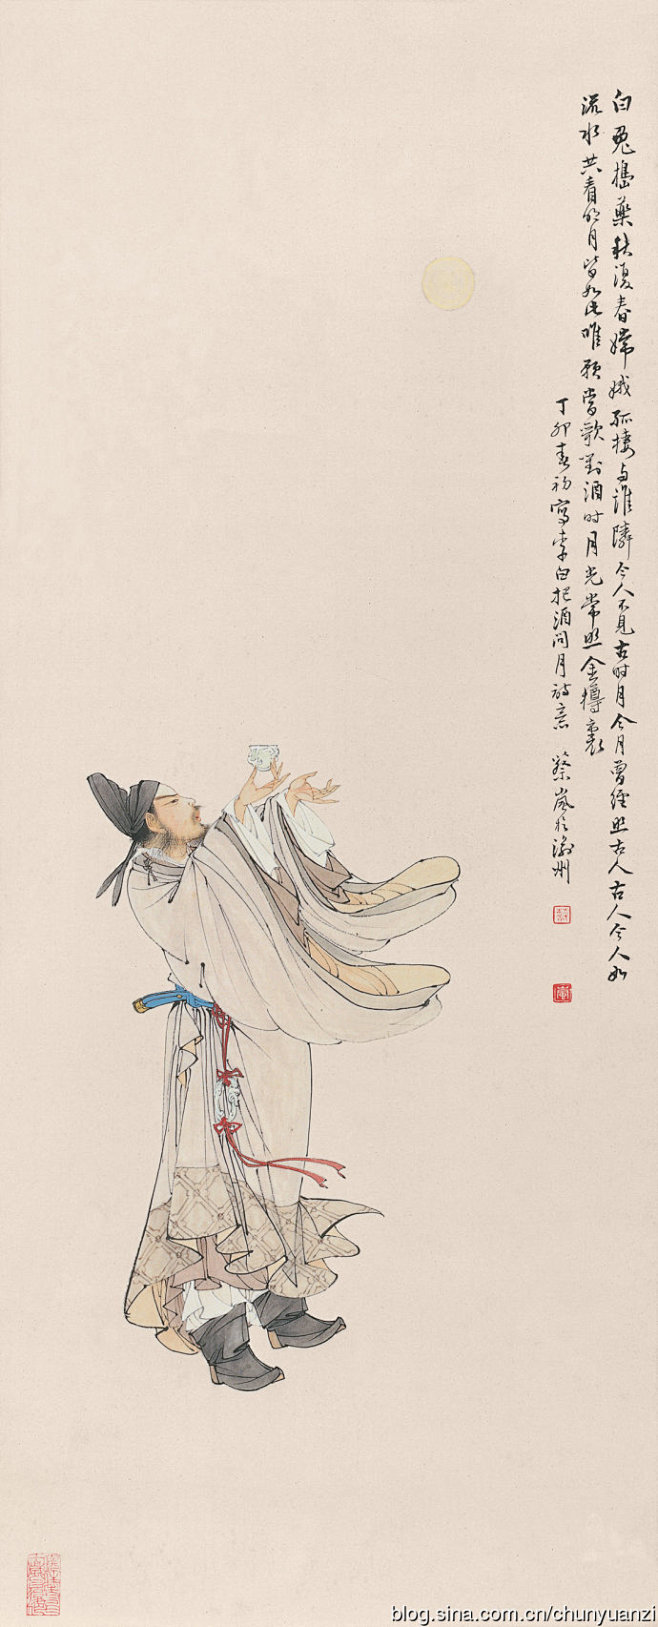 白兔搗藥秋復春嫦娥孤棲与誰隣今人不見古时月今月曾经照古人古人今人如
流水共看明月皆如此唯願當歌對酒时月光常照金樽裏
丁卯春初寫李白把酒问月诗意 蔡岚於渝州
blog.sina.com.cn/chunyuanzi